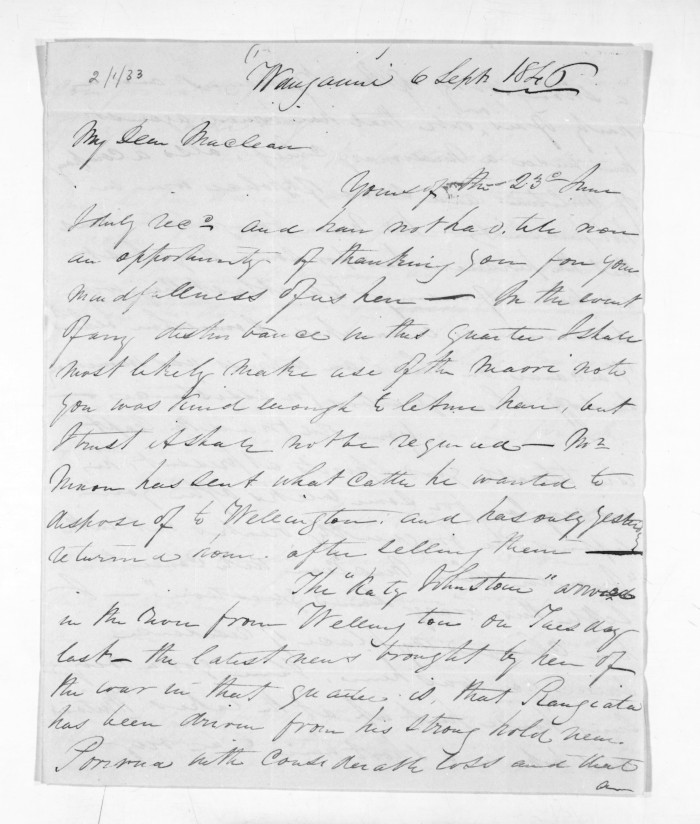 2/1/33
Wanganui 6 Sept 1846
My Dear Maclean
Yours of the 23d June
I duly recd and have not had, till now
an opportunity of thanking you for your
mindfullness of us here — In the event
of any disturbance in this quarter I shall
most likely make use of the maori note
you was kind enough to let me have, but
I trust it shall not be required — Mr
Nixon has sent what cattle he wanted to
dispose of to Wellington, and has only yesterday
returned home after selling them —
The "Katy Johnstone" arrived
in the river from Wellington on Tuesday
last — the latest news brought by her of
the war in that quarter is, that Rangiata
has been driven from his strong hold near
Porirua with considerable loss and that
an